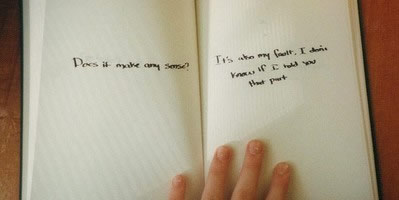 Does it make any sense?
It's also my fault. I don't
know if I told you
that part